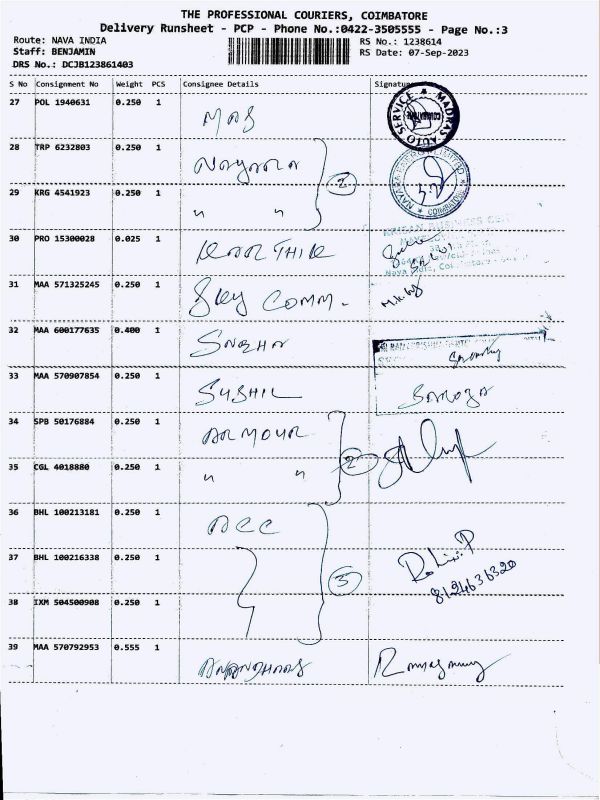 THE PROFESSIONAL COURIERS, COIMBATORE
Delivery Runsheet - PCP - Phone No.:0422-3505555 - Page No.:3
Route: NAVA INDIA RS No.: 1238614
Staff: BENJAMIN RS Date: 07-Sep-2023
DRS No.: DCJB123861403
S No Consignment No Weight PCS Consignee Details Signature
27 POL 1940631 0.250 1 MAS MADRAS AUTO SERVICE COIMBATORE
28 TRP 6232803 0.250 1 NAYARA
29 KRG 4541923 0.250 1 " " 2 COIMBATORE
30 PRO 15300028 0.025 1 KARTHIK
31 MAA 571325245 0.250 1 SKY COMM.
32 MAA 600177635 0.400 1 SNEHA
33 MAA 570907854 0.250 1 SUSHIL SAROJA
34 SPB 50176884 0.250 1 ARMOUR
35 CGL 4018880 0.250 1 " " 2
36 BHL 100213181 0.250 1 ACC
37 BHL 100216338 0.250 1 3 Rohini.P
8124636320
38 IXM 504500908 0.250 1
39 MAA 570792953 0.555 1